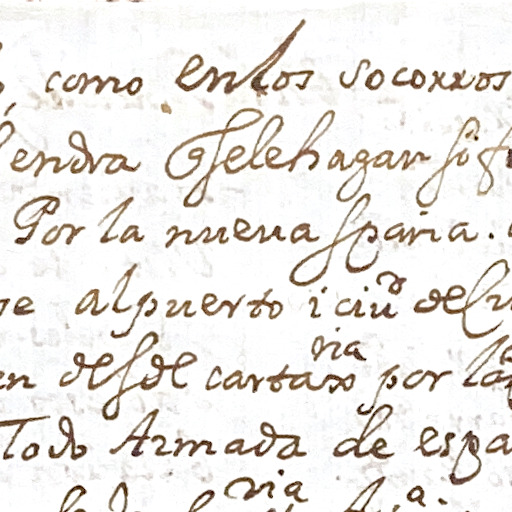 como en los socorros
endra q se le hagan si
Por la nueva spaña.
al puerto i ciud de
en desde carta por la
ria
Todo Armada de espa
via